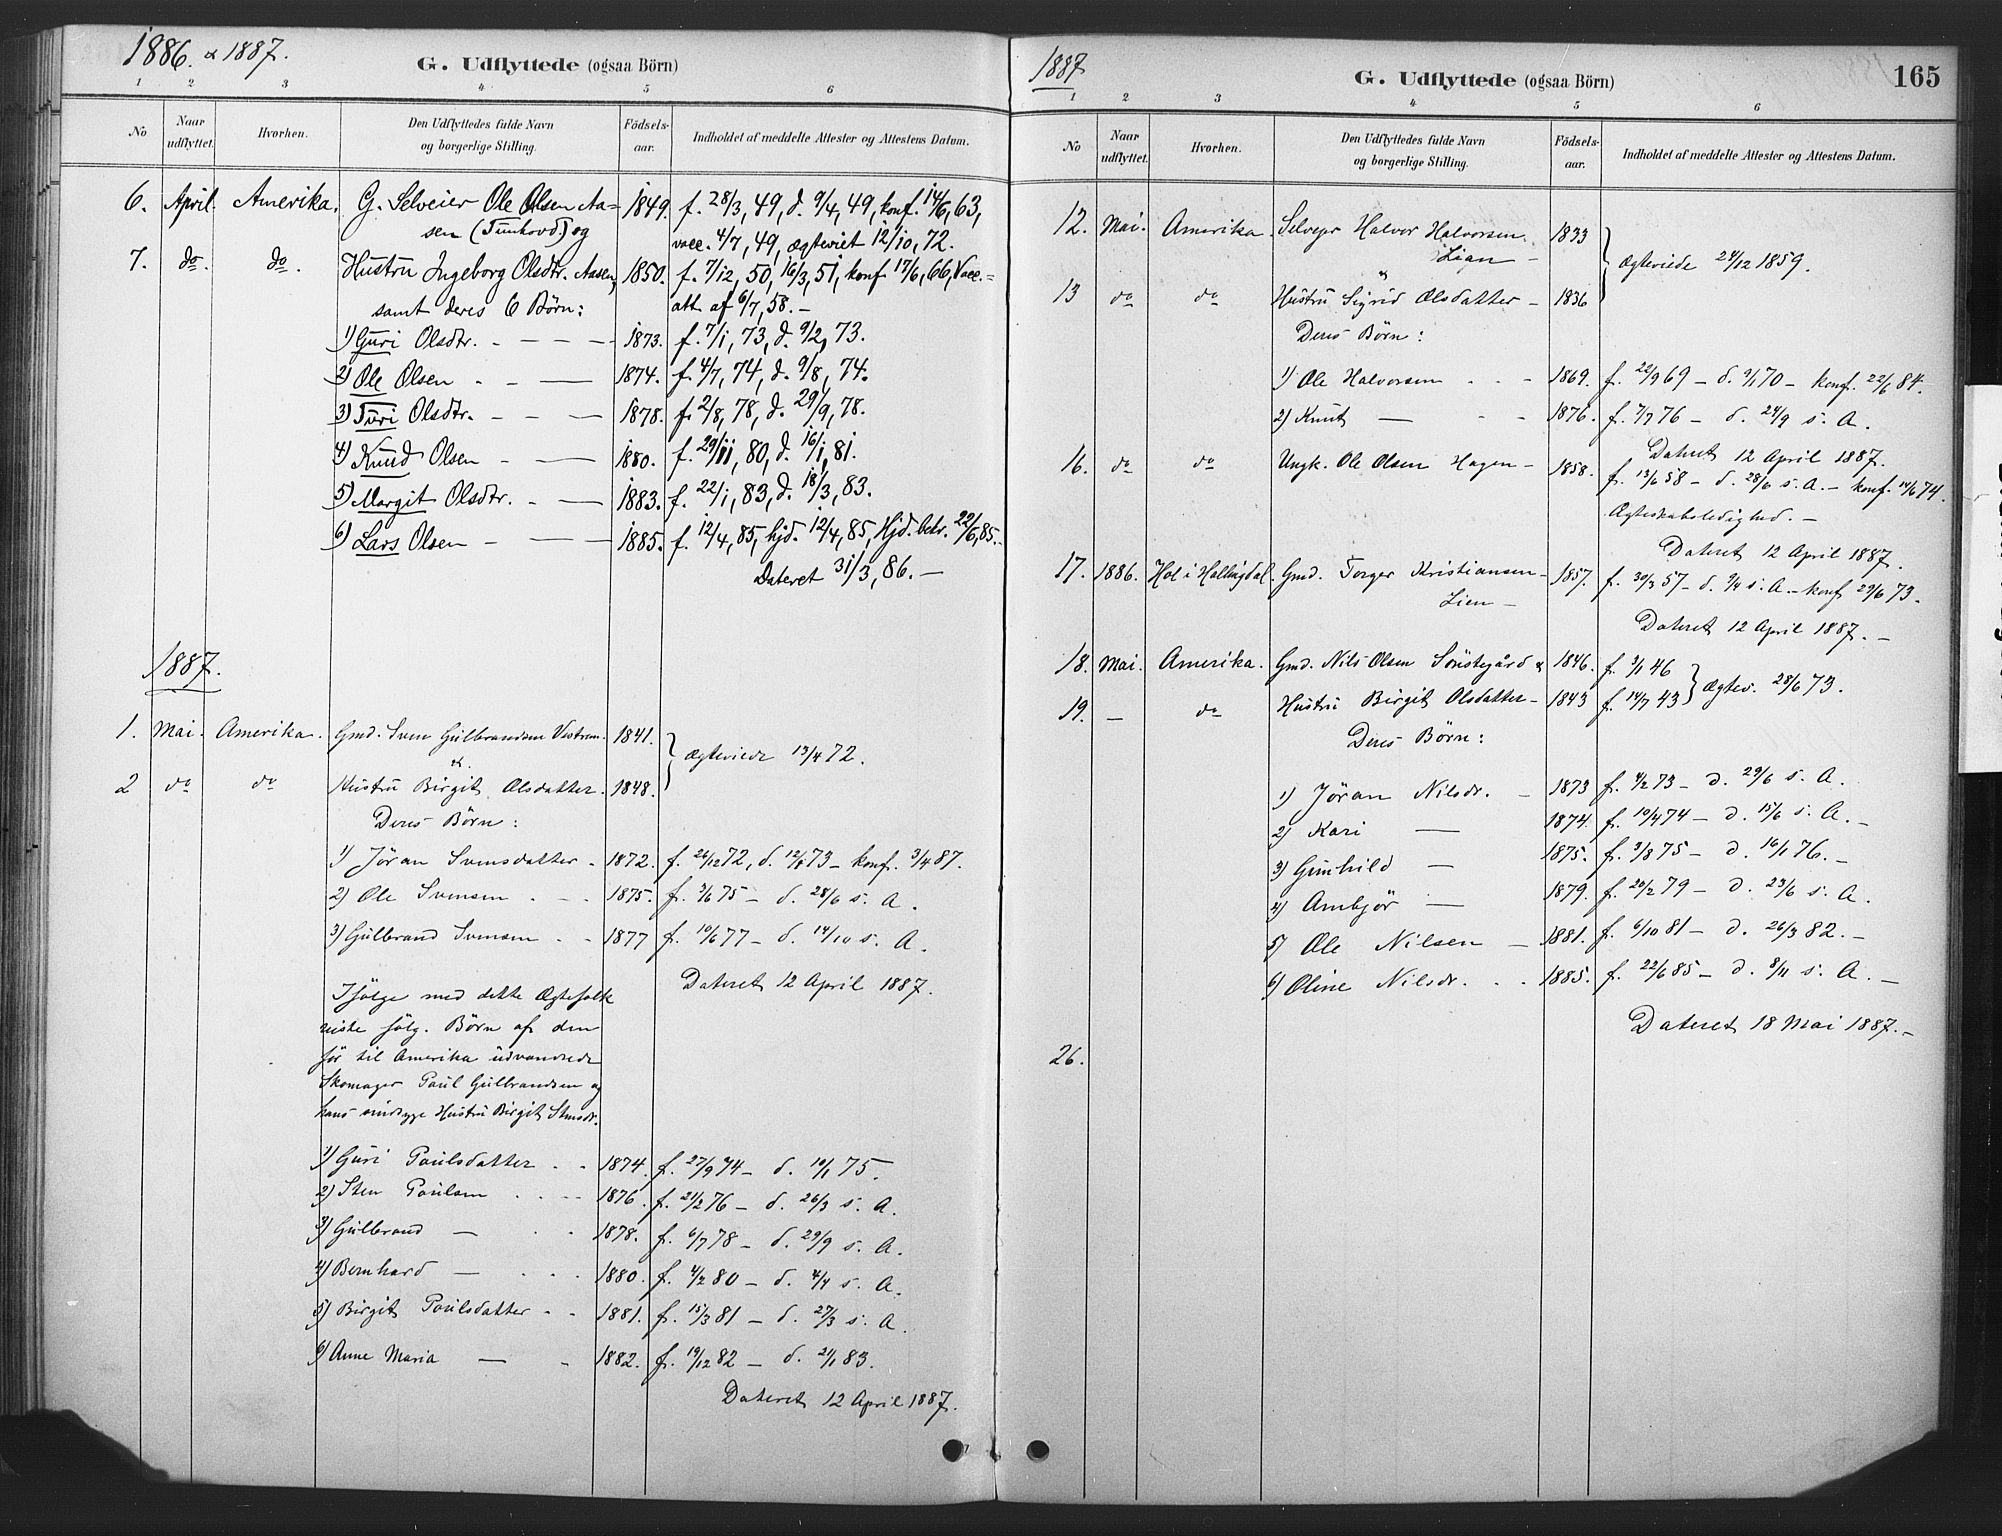 1886. & 1887.
G. Udflyttede (ogsaa Börn)
1 2 3 4 5 6
No
Naar udflyttet.
Hvorhen.
Den Udflyttedes fulde Navn og borgerlige Stilling.
Födsels-aar.
Indholdet af meddelte Attester og Attestens Datum.
6. April. Amerika. G. Selveier Ole Olsen Aa= 1849. f. 28/3, 49, d. 9/4, 49, konf. 14/6, 63,
sen (Tunhovd.) og vacc. 4/7, 49, ægteviet 12/10, 72.
7. do. do. Hustru Ingeborg Olsdtr. Aasen, 1850. f. 7/12, 50, 16/3, 51, konf 17/6, 66, Vacc.=
samt deres 6 Börn: att. af 6/7, 58.-
1) Guri Olsdtr. - - - - 1873. f. 7/1, 73, d. 9/2, 73.
2) Ole Olsen - - — 1874. f. 4/7, 74, d. 9/8, 74.
3) Turi Olsdtr. - - — 1878. f. 2/8, 78, d. 29/9, 78.
4) Knud Olsen - — 1880. f. 29/11, 80, d. 16/1, 81.
5) Margit Olsdtr. - — 1883. f. 22/1, 83, d. 18/3, 83.
6) Lars Olsen - — — 1885. f. 12/4, 85, hjd. 12/4, 85, Hjd. bekr. 22/6, 85.
Dateret 31/3, 86. —
1887.
1. Mai. Amerika. Gmd. Sven Gulbrandsen Vestrum. 1841.
&
Ægteviede 13/4 72.
2 do do Hustru Birgit Olsdatter. 1848.
Deres Börn:
1) Jöran Svensdatter - 1872. f. 26/12 72, d. 12/1 73 - konf. 3/4 87.
2) Ole Svensen - - 1875. f. 3/6 75 - d. 28/6 s. A.
3) Gulbrand Svensen - - 1877 f. 10/6 77 - d. 14/10 s. A.
Dateret 12 April 1887.
Ifölge med dette Ægtefolk
reiste fölg. Börn af den
för til Amerika udvandrede
Skomager Paul Gulbrandsen og
hans sindsyge Hustru Birgit Stensdr.
1) Guri Paulsdatter . . 1874. f. 27/9 74 - d. 10/1 75.
2) Sten Paulsen . . - 1876. f. 21/2 76 - d. 26/3 s. A.
3) Gulbrand — . . 1878. f. 6/7 78 - d. 29/9 s. A.
4) Bernhard — . . . 1880. f. 4/2 80 - d. 4/4 s. A.
5) Birgit Paulsdatter - - 1881. f. 15/3 81 - d. 27/3 s. A.
6) Anne Maria — - 1882. f. 19/12 82 - d. 21/1 83.
Dateret 12 April 1887.
1887
G. Udflyttede (ogsaa Börn)
165
1 2 3 4 5 6
No
Naar udflyttet.
Hvorhen.
Den Udflyttedes fulde Navn og borgerlige Stilling.
Födsels-aar.
Indholdet af meddelte Attester og Attestens Datum.
12. Mai. Amerika. Selvejer Halvor Halvorsen 1833
Lian -
Ægteviede 29/12 1859.
&
13 do do Hustru Sigrid Olsdatter - 1836
Deres Börn:
1) Ole Halvorsen . . - 1869. f. 22/9 69 - d. 9/1 70 - konf. 22/6 84.
2) Knut — - - 1876. f. 7/7 76 - d. 24/9 s. A.
Dateret 12 April 1887.
16. do do Ungk. Ole Olsen Hagen - 1858. f. 13/6 58 - d. 28/6 s. A. - konf. 14/6 74.
Ægteskabsledighed. -
Dateret 12 April 1887.
17. 1886. Hol i Hallingdal. Gmd. Torger Kristiansen - 1857. f. 30/3 57 - d. 9/4 s. A. - konf 29/6 73.
Lien -
Dateret 12 April 1887. -
18. Mai. Amerika. Gmd. Nils Olsen Sönstegård & 1846. f. 3/1 46
Ægtev. 28/6 73.
19. - do Hustru Birgit Olsdatter - 1843 f. 14/7 43
Deres Börn:
1) Jöran Nilsdr. - 1873 f. 4/2 73 - d. 29/6 s. A.
2) Kari — 1874. f. 10/4 74 - d. 15/6 s. A. -
3) Gunhild — 1875. f. 3/8 75 - d. 16/1 76. -
4) Ambjör — 1879. f. 20/2 79 - d. 23/6 s. A.
5) Ole Nilsen - 1881. f. 6/10 81 - d. 26/3 82. -
6) Oline Nilsdr. . . 1885. f. 22/6 85 - d. 8/11 s. A. -
Dateret 18 Mai 1887. -
26.